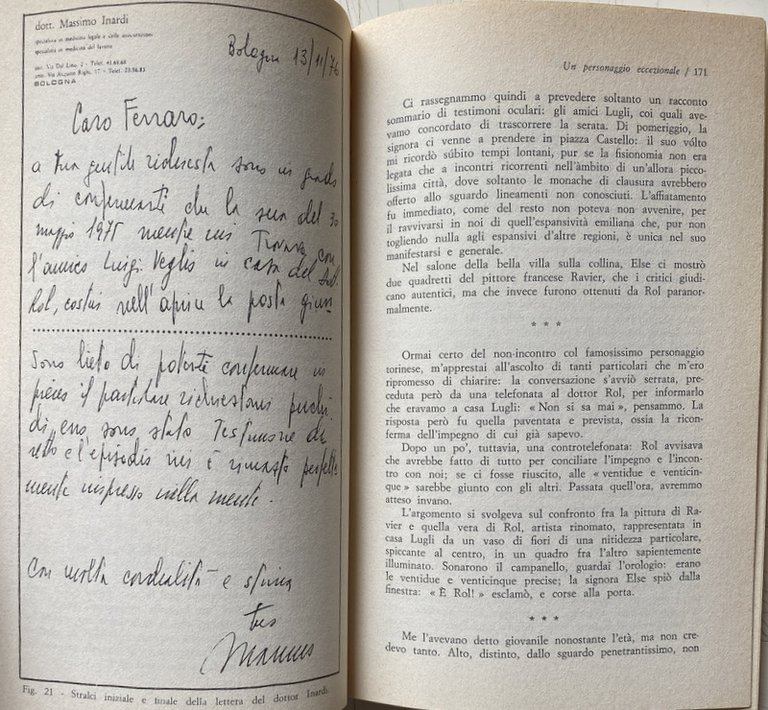 dott. Massimo Inardi
specialista in medicina legale e delle assicurazioni
specialista in medicina del lavoro
BOLOGNA
Bologna 13/11/76
Caro Ferraro;
a tua gentile richiesta sono in grado
di confermarti che la sera del 30
maggio 1975 mentre mi trovavo con
l'amico Luigi Veglis in casa del dott.
Rol, costui nell'aprire la posta giun-
Sono lieto di poterti confermare in
pieno il particolare richiestomi perché
di esso sono stato testimone di-
retto e l'episodio mi è rimasto perfetta-
mente impresso nella mente.
Con molta cordialità e stima
tuo
Massimo
Fig. 21 - Stralci iniziale e finale della lettera del dottor Inardi.
Un personaggio eccezionale / 171
Ci rassegnammo quindi a prevedere soltanto un racconto
sommario di testimoni oculari: gli amici Lugli, coi quali ave-
vamo concordato di trascorrere la serata. Di pomeriggio, la
signora ci venne a prendere in piazza Castello: il suo vólto
mi ricordò súbito tempi lontani, pur se la fisionomia non era
legata che a incontri ricorrenti nell'àmbito di un'allora picco-
lissima città, dove soltanto le monache di clausura avrebbero
offerto allo sguardo lineamenti non conosciuti. L'affiatamento
fu immediato, come del resto non poteva non avvenire, per
il ravvivarsi in noi di quell'espansività emiliana che, pur non
togliendo nulla agli espansivi d'altre regioni, è unica nel suo
manifestarsi e generale.
Nel salone della bella villa sulla collina, Else ci mostrò
due quadretti del pittore francese Ravier, che i critici giudi-
cano autentici, ma che invece furono ottenuti da Rol paranor-
malmente.
* * *
Ormai certo del non-incontro col famosissimo personaggio
torinese, m'apprestai all'ascolto di tanti particolari che m'ero
ripromesso di chiarire: la conversazione s'avviò serrata, pre-
ceduta però da una telefonata al dottor Rol, per informarlo
che eravamo a casa Lugli: « Non si sa mai », pensammo. La
risposta però fu quella paventata e prevista, ossia la ricon-
ferma dell'impegno di cui già sapevo.
Dopo un po', tuttavia, una controtelefonata: Rol avvisava
che avrebbe fatto di tutto per conciliare l'impegno e l'incon-
tro con noi; se ci fosse riuscito, alle « ventidue e venticin-
que » sarebbe giunto con gli altri. Passata quell'ora, avremmo
atteso invano.
L'argomento si svolgeva sul confronto fra la pittura di Ra-
vier e quella vera di Rol, artista rinomato, rappresentata in
casa Lugli da un vaso di fiori di una nitidezza particolare,
spiccante al centro, in un quadro fra l'altro sapientemente
illuminato. Sonarono il campanello, guardai l'orologio: erano
le ventidue e venticinque precise; la signora Else spiò dalla
finestra: « È Rol! » esclamò, e corse alla porta.
* * *
Me l'avevano detto giovanile nonostante l'età, ma non cre-
devo tanto. Alto, distinto, dallo sguardo penetrantissimo, non